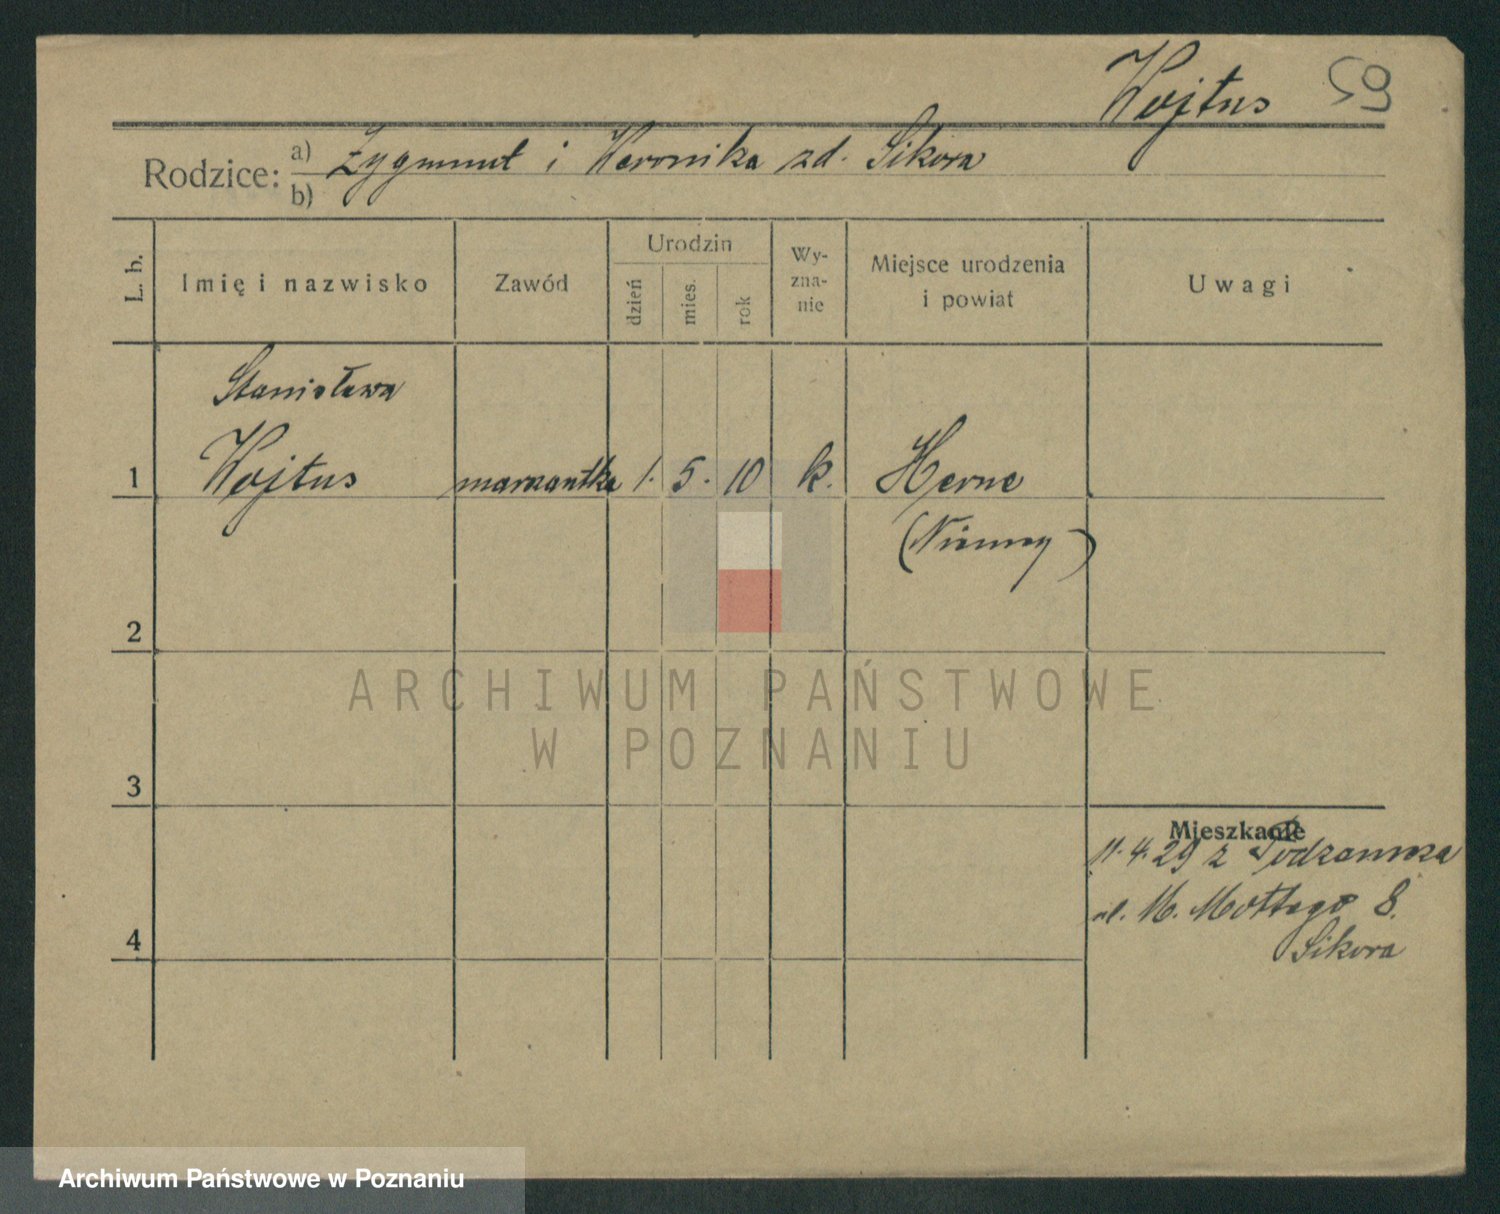 Wojtus 59
Rodzice: a) Zygmunt i Weronika zd. Sikora
b)
L. b.
Imię i nazwisko
Zawód
Urodzin
dzień
mies.
rok
Wy-
zna-
nie
Miejsce urodzenia
i powiat
Uwagi
Stanisława
1 Wojtus 1. 5. 10 k. Herne
(Niemcy)
2
ARCHIWUM PAŃSTWOWE
W POZNANIU
3
Mieszkanie
11.4.29 z Podzamcza
ul. M. Mottego 8.
Sikora
4
Archiwum Państwowe w Poznaniu